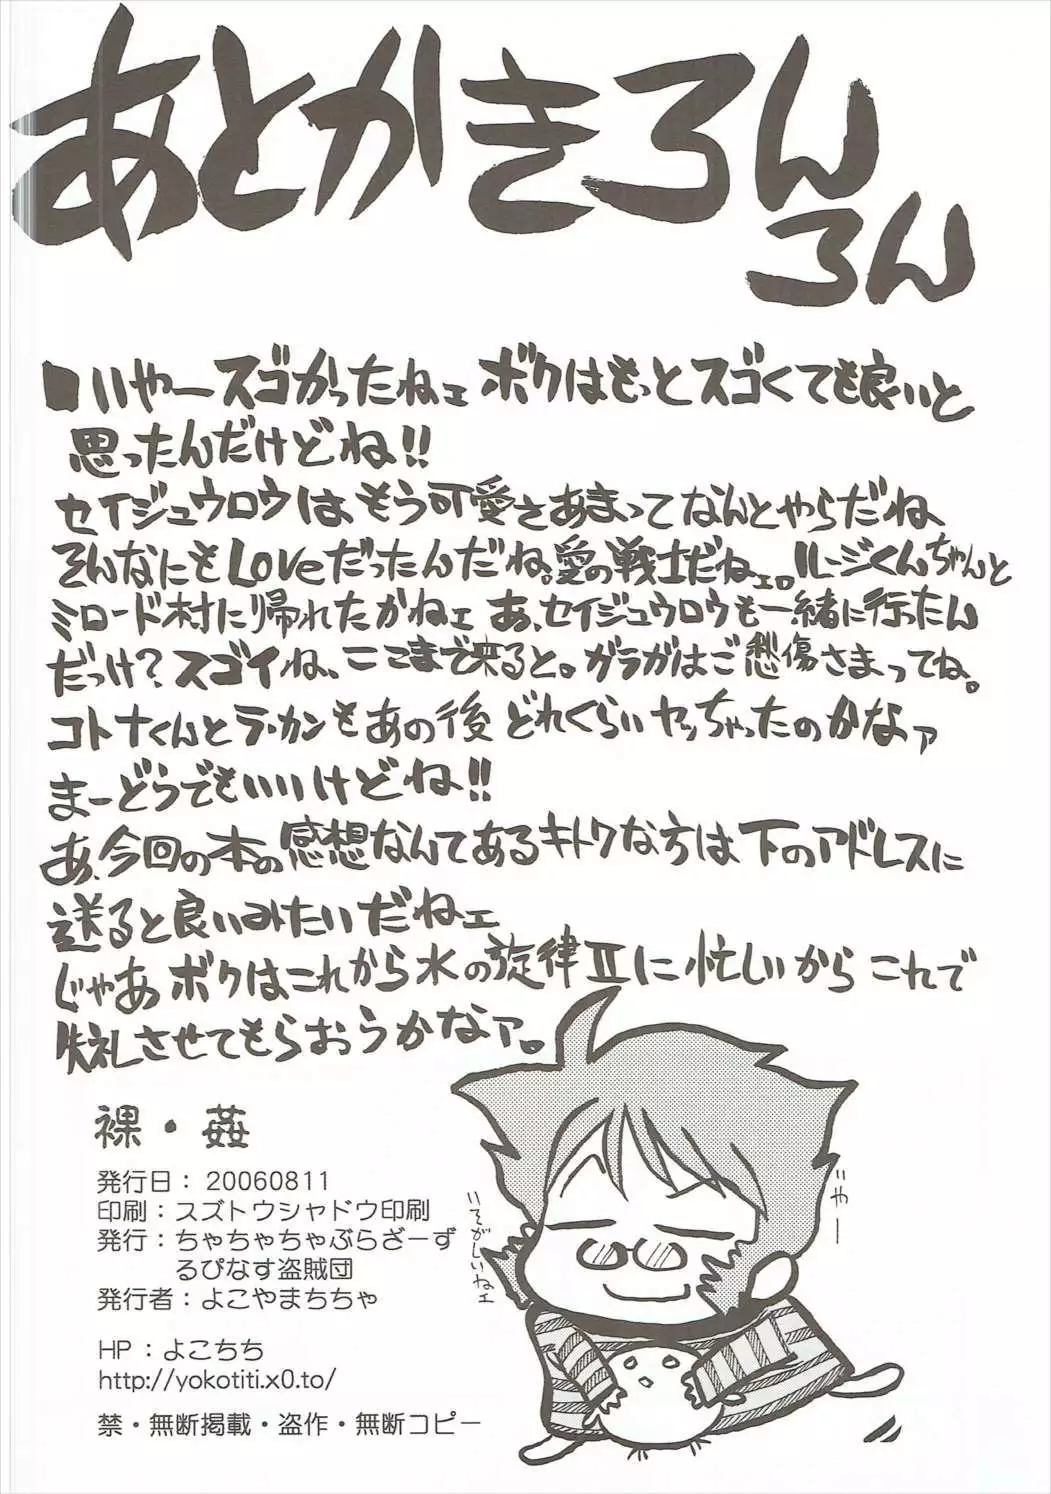 あとかきろん
ろん
■いやースゴかったねェ ボクはもっとスゴくても良いと
思ったんだけどね!!
セイジュウロウは、もう可愛さあまってなんとやらだね、
そんなにもLoveだったんだね。愛の戦士だねェ。ルージくんちゃんと
ミロード村に帰れたかねェ あ、セイジュウロウも一緒に行ったん
だっけ?スゴイね、ここまで来ると。ガラガはご愁傷さまってね。
コトナくんとラ・カンもあの後どれくらいヤッちゃったのかなァ
まーどうでもいいけどね!!
あ、今回の本の感想なんてあるキトクな方は下のアドレスに
送ると良いみたいだねェ
じゃあボクはこれから水の旋律Ⅱに忙しいからこれで
失礼させてもらおうかなァ。
裸・姦
発行日:20060811
印刷:スズトウシャドウ印刷
発行:ちゃちゃちゃぶらざーず
るぴなす盗賊団
発行者:よこやまちちゃ
HP:よこちち
http://yokotiti.x0.to/
禁・無断掲載・盗作・無断コピー
いやー
いそがしいねェ